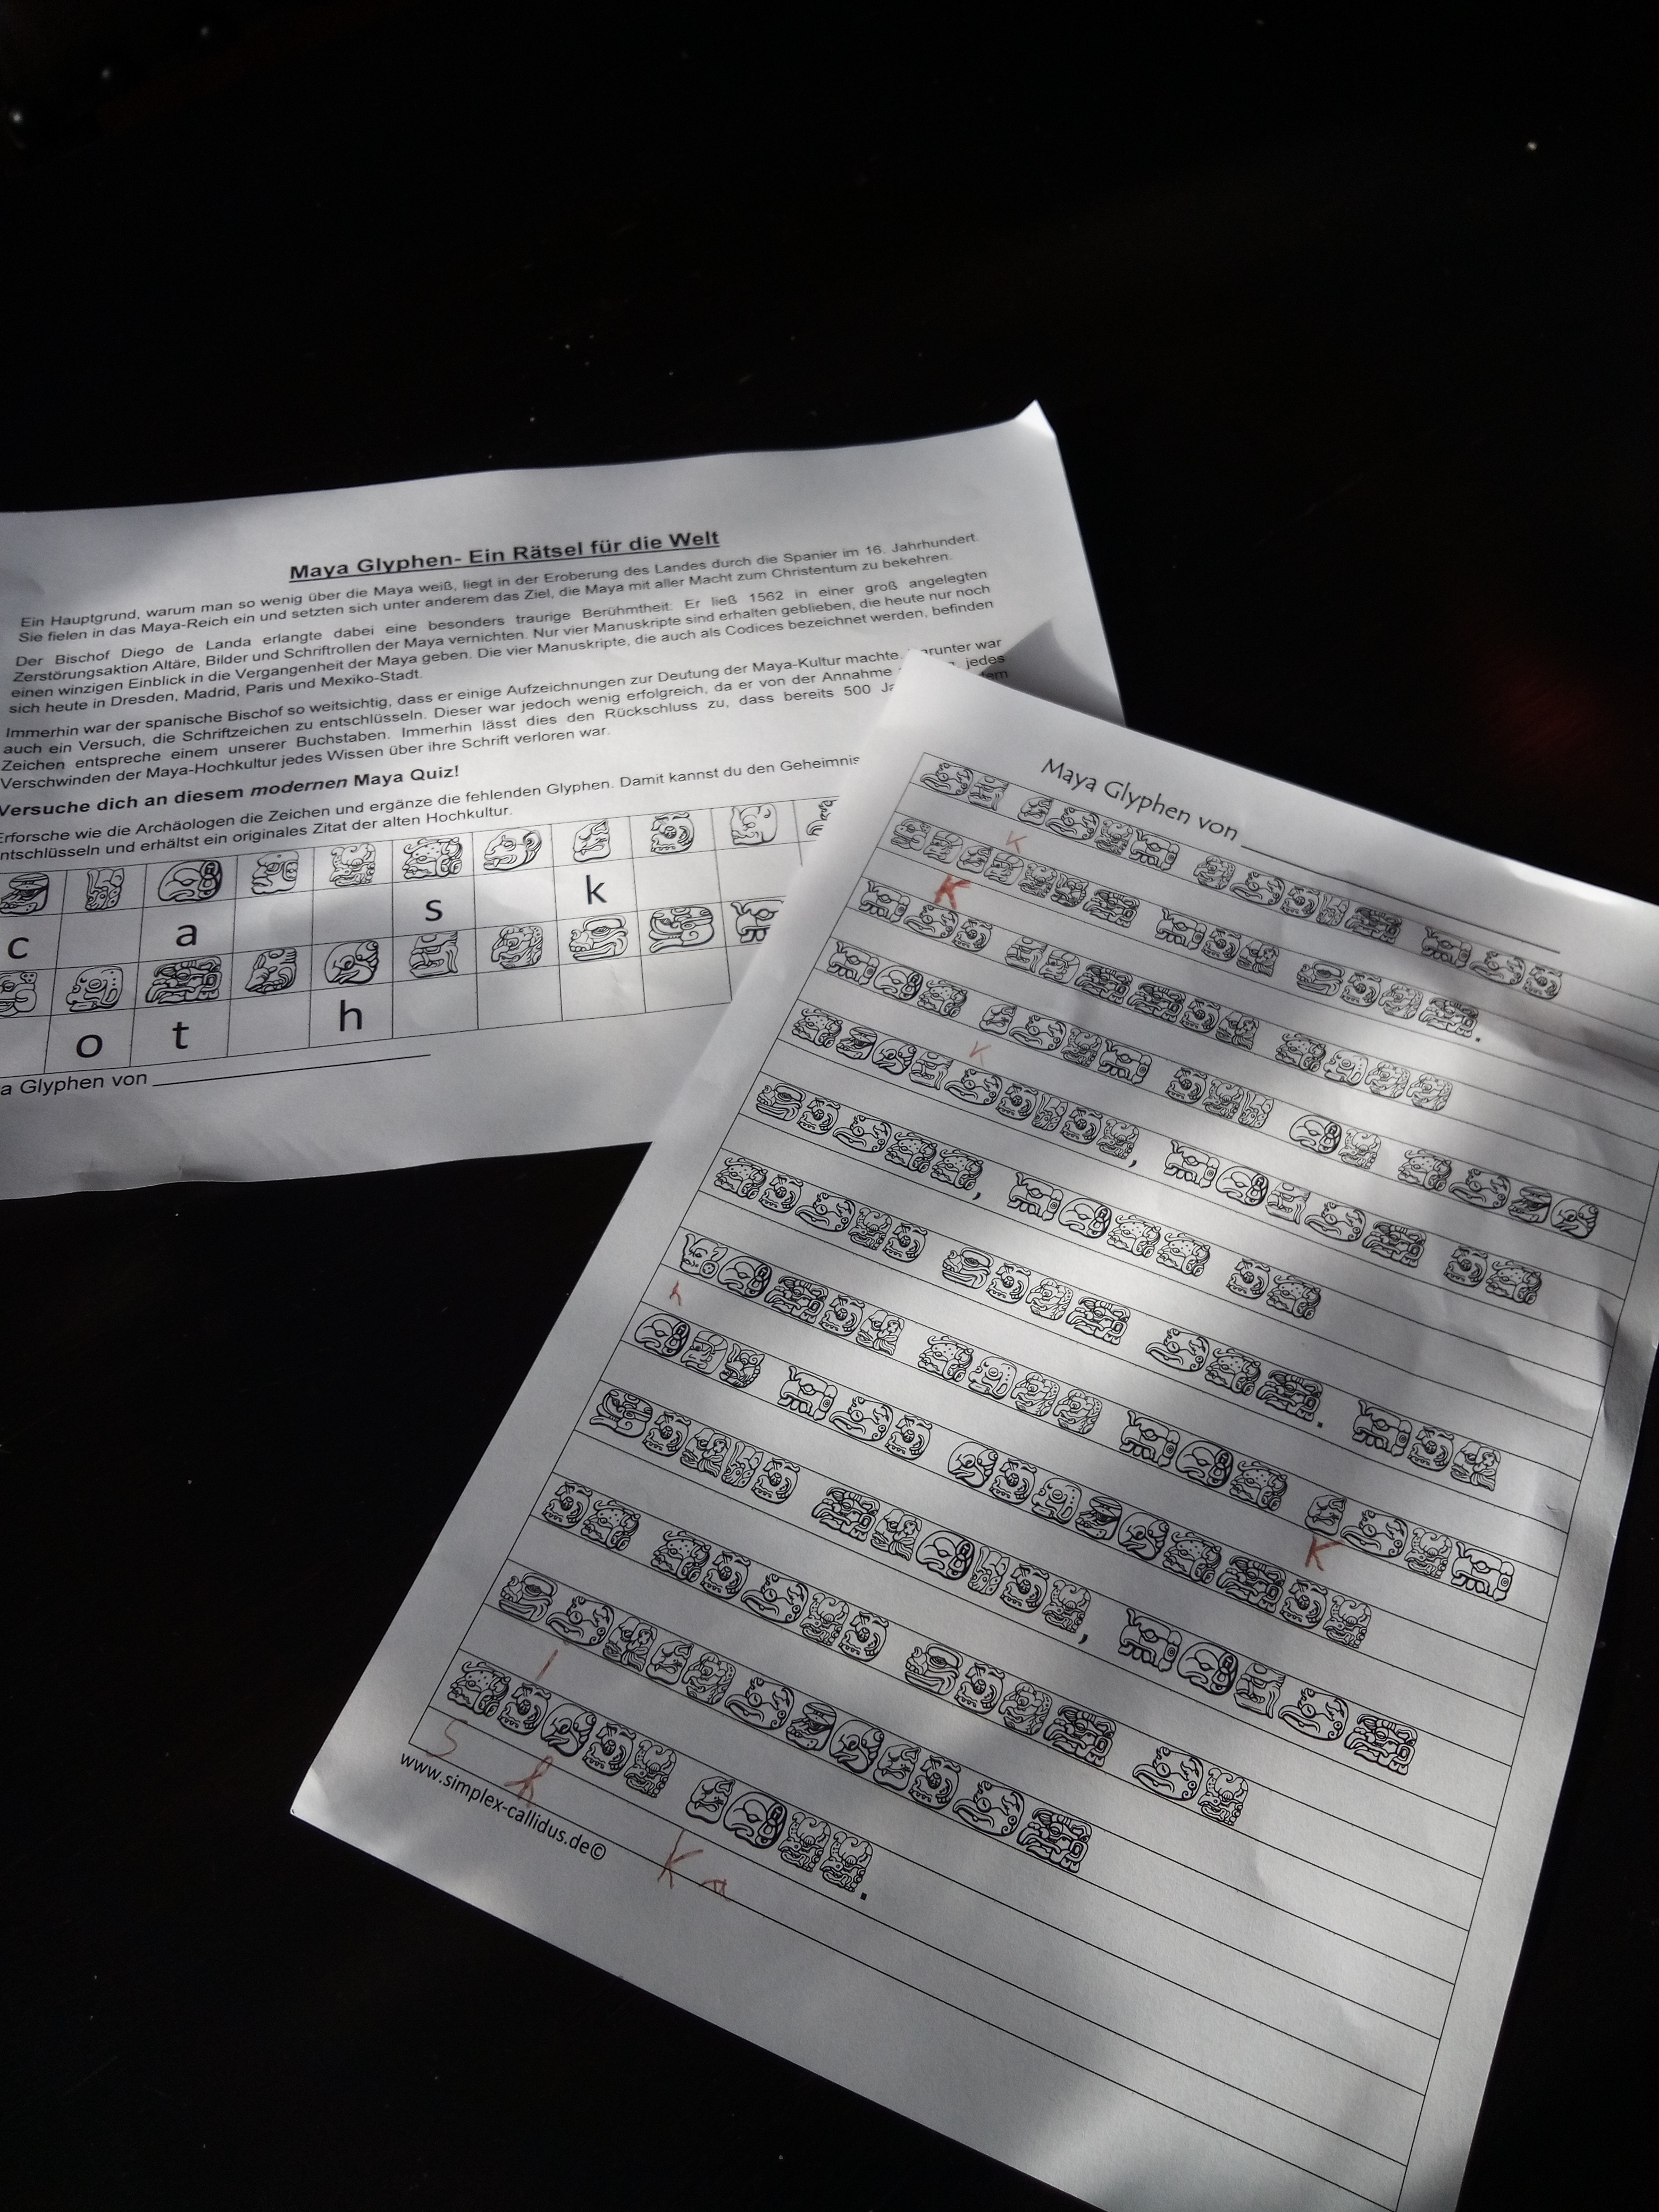 Maya Glyphen- Ein Rätsel für die Welt
Ein Hauptgrund, warum man so wenig über die Maya weiß, liegt in der Eroberung des Landes durch die Spanier im 16. Jahrhundert.
Sie fielen in das Maya-Reich ein und setzten sich unter anderem das Ziel, die Maya mit aller Macht zum Christentum zu bekehren.
Der Bischof Diego de Landa erlangte dabei eine besonders traurige Berühmtheit: Er ließ 1562 in einer groß angelegten
Zerstörungsaktion Altäre, Bilder und Schriftrollen der Maya vernichten. Nur vier Manuskripte sind erhalten geblieben, die heute nur noch
einen winzigen Einblick in die Vergangenheit der Maya geben. Die vier Manuskripte, die auch als Codices bezeichnet werden, befinden
sich heute in Dresden, Madrid, Paris und Mexiko-Stadt.
Immerhin war der spanische Bischof so weitsichtig, dass er einige Aufzeichnungen zur Deutung der Maya-Kultur machte. arunter war
auch ein Versuch, die Schriftzeichen zu entschlüsseln. Dieser war jedoch wenig erfolgreich, da er von der Annahme jedes
Zeichen entspreche einem unserer Buchstaben. Immerhin lässt dies den Rückschluss zu, dass bereits 500 Ja dem
Verschwinden der Maya-Hochkultur jedes Wissen über ihre Schrift verloren war.
Versuche dich an diesem modernen Maya Quiz!
Erforsche wie die Archäologen die Zeichen und ergänze die fehlenden Glyphen. Damit kannst du den Geheimnis
ntschlüsseln und erhältst ein originales Zitat der alten Hochkultur.
c a s k
o t h
a Glyphen von
Maya Glyphen von
K
K
K
h
K
i
s h
K a
www.simplex-callidus.de©